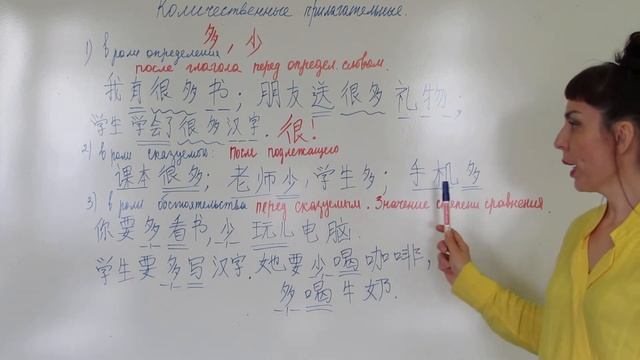 Количественные прилагательные.
多, 少
1) в роли определения
после глагола перед определ. словом.
我有很多书; 朋友送很多礼物;
学生学会了很多汉字. 很!
2) в роли сказуемого: после подлежащего
课本很多; 老师少, 学生多; 手机多
3) в роли обстоятельства перед сказуемым. Значение степени сравнения.
你要多看书, 少玩儿电脑.
学生要多写汉字. 她要少喝咖啡,
多喝牛奶.